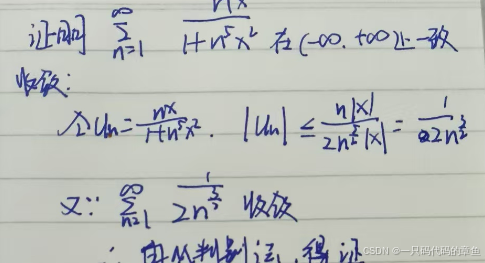 证明 ∑_{n=1}^{∞} nx/(1+n⁵x²) 在(-∞,+∞)上一致
收敛:
令Un = nx/(1+n⁵x²). |Un| ≤ n|x|/(2n^{5/2}|x|) = 1/(2n^{3/2})
又∵ ∑_{n=1}^{∞} 1/(2n^{3/2}) 收敛
∴ 由M判别法,得证
CSDN @一只码代码的章鱼